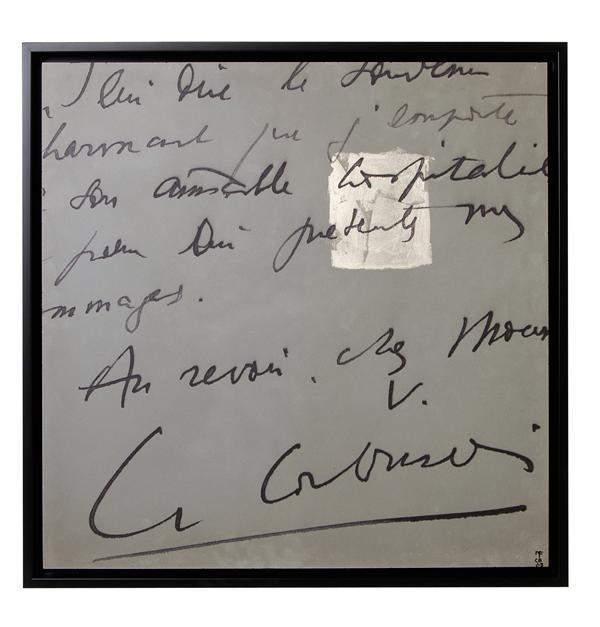 lui dire le souvenir
harmant que j'emporte
son aimable hospitali
pour lui présenter mes
mmages.
Au revoir. cher Mon
V.
Le Corbusier